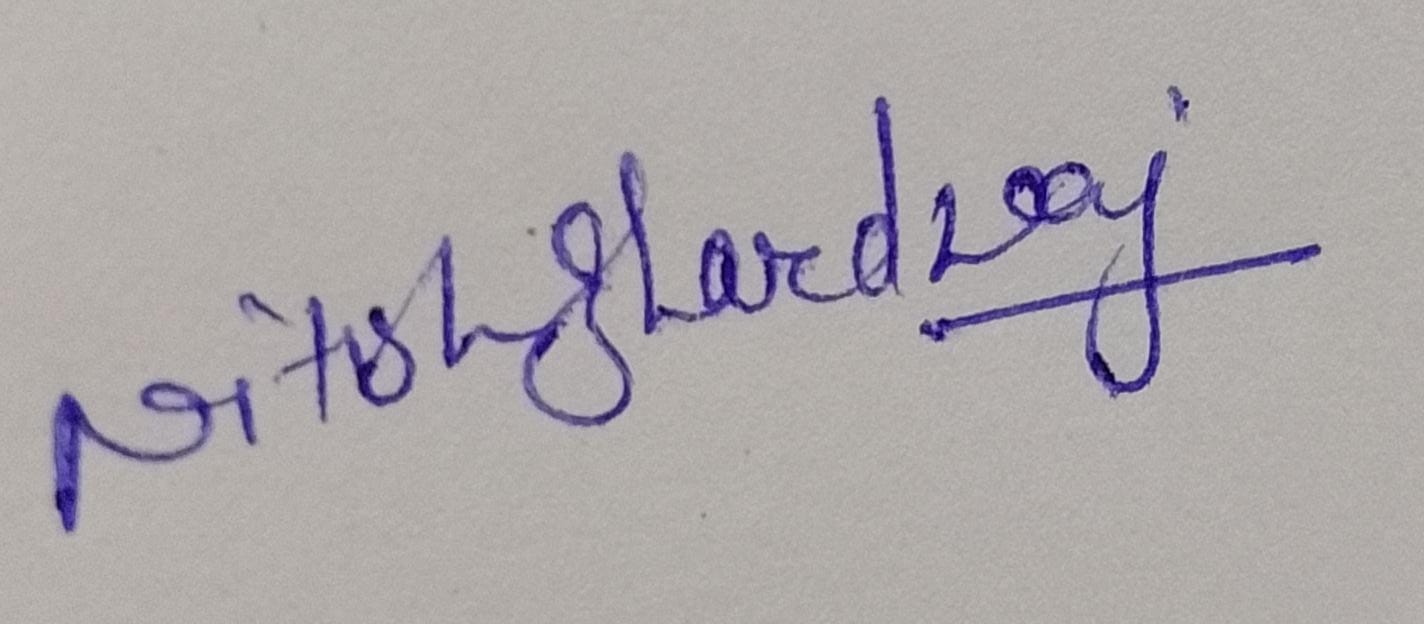 Nitish Bhardwaj